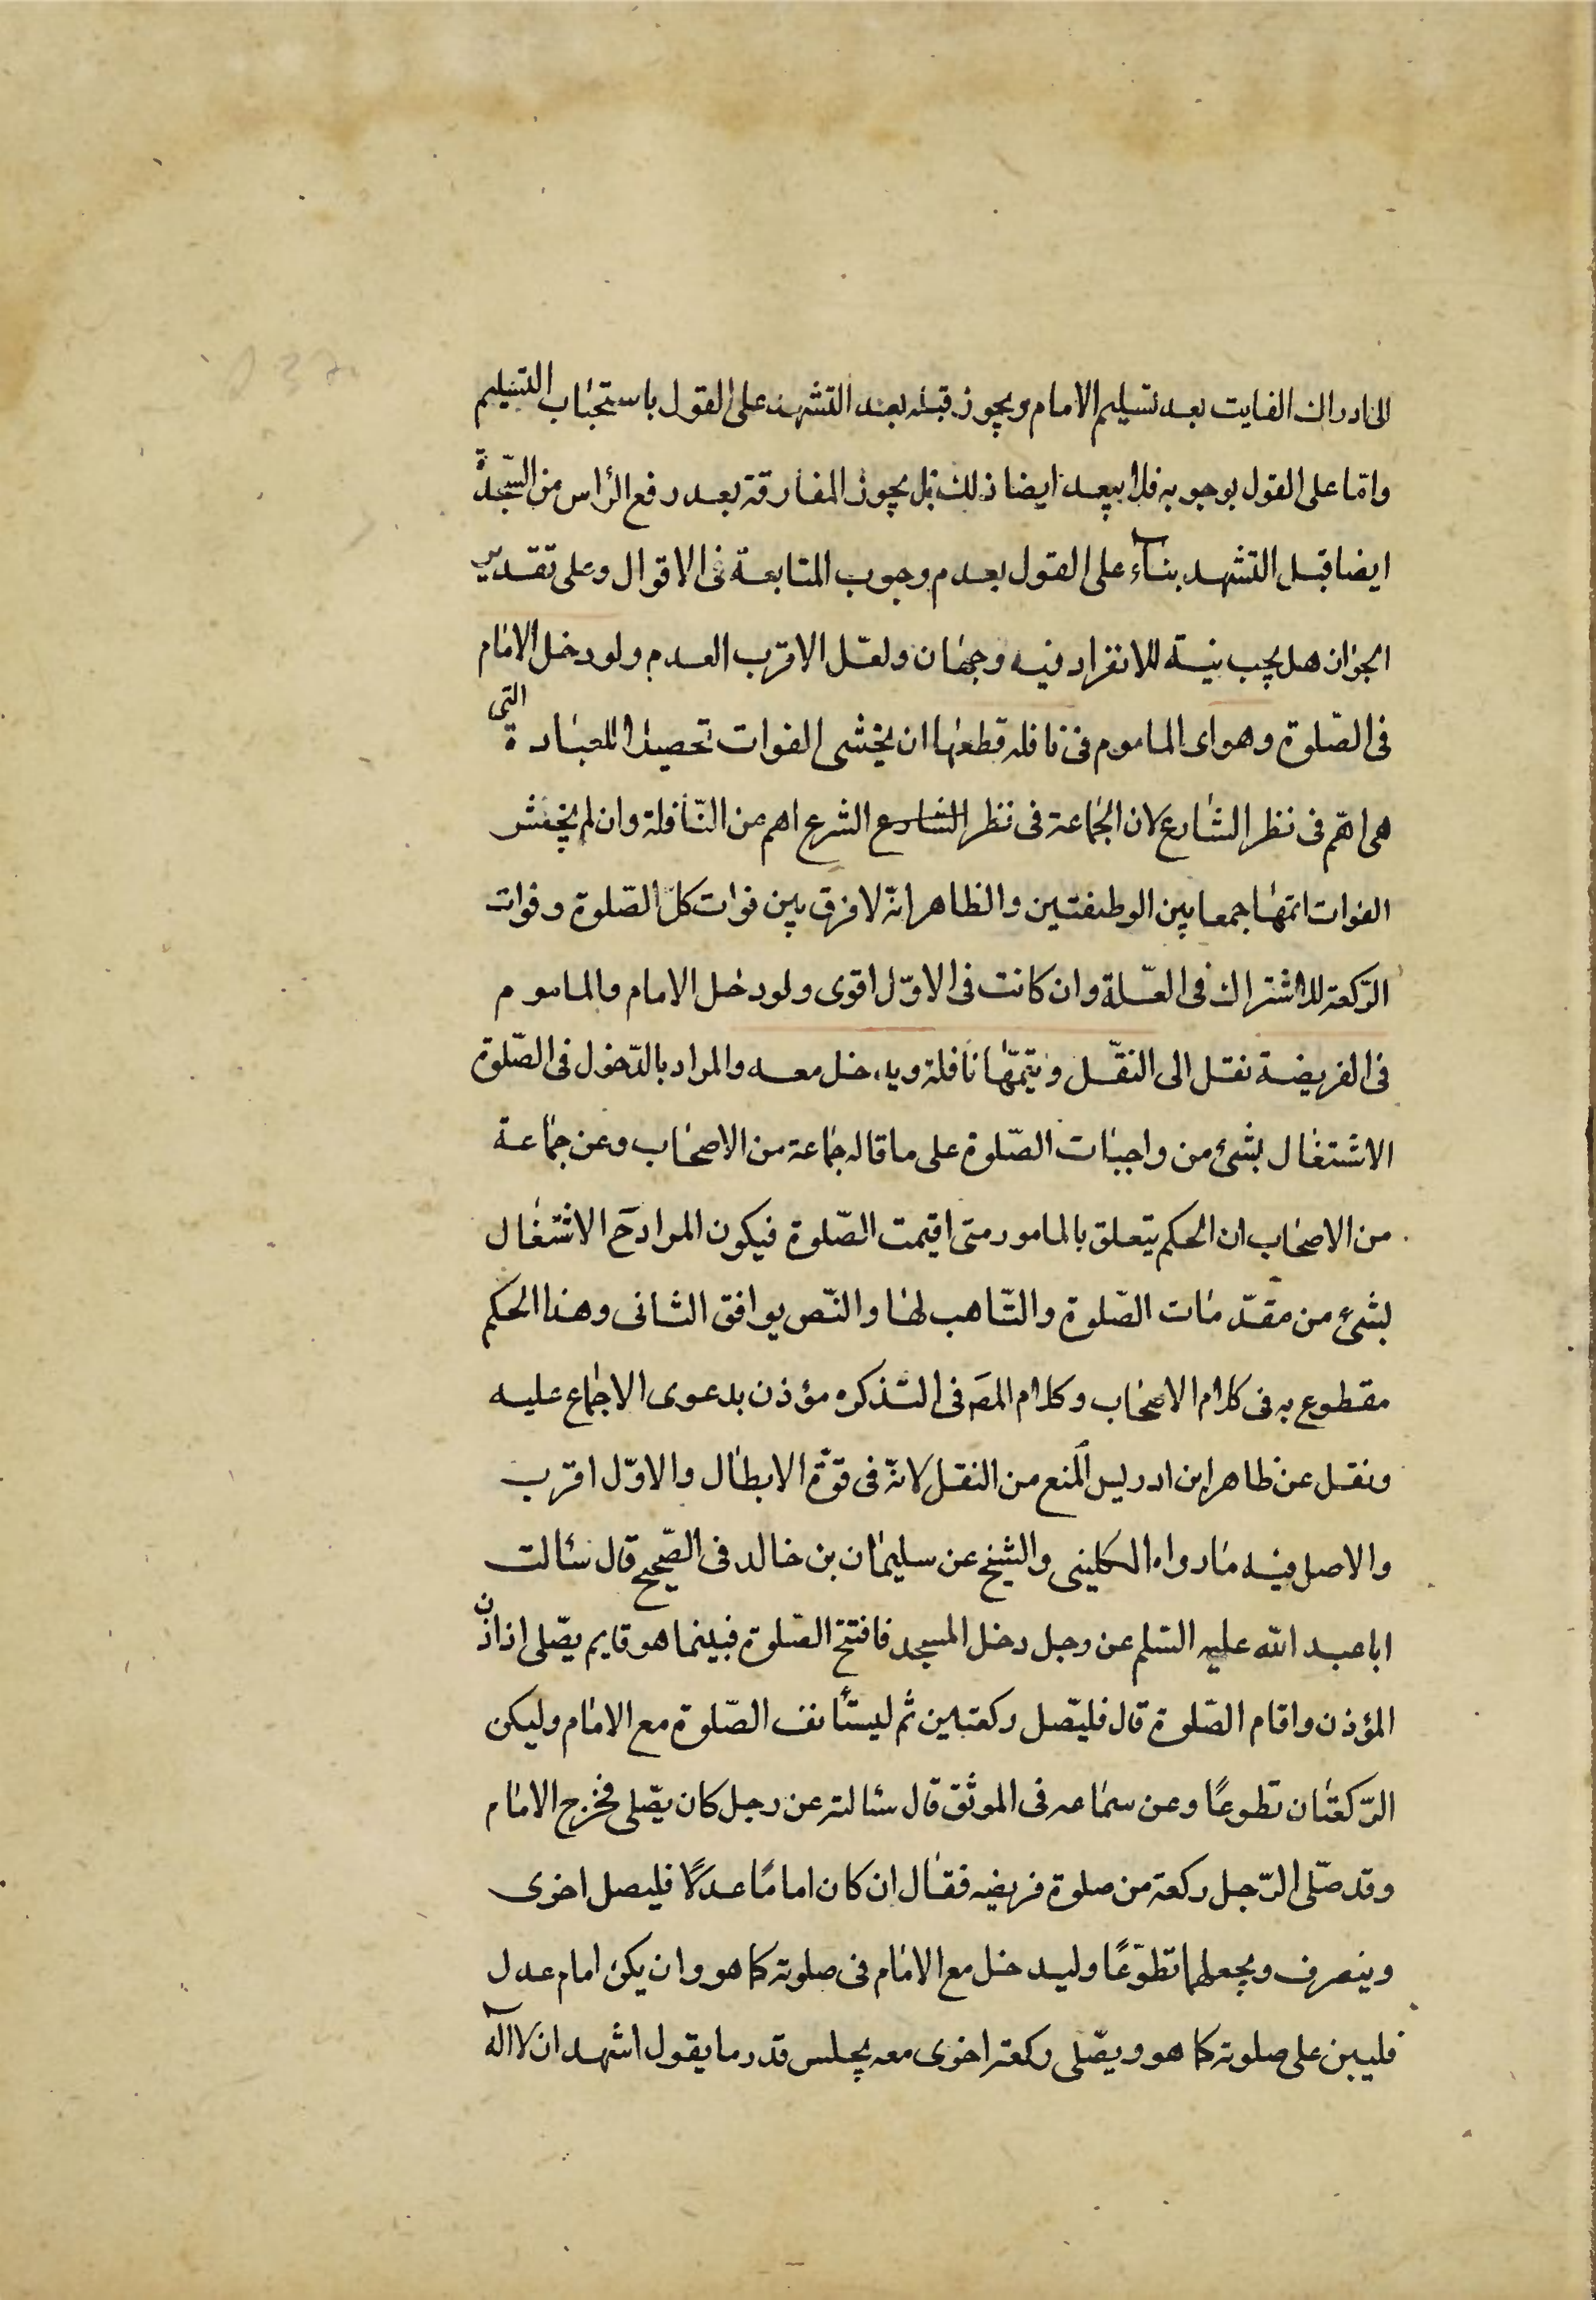 الى ادراك الفايت بعد تسليم الامام ويجوز قبله بعد التشهد على القول باستحباب التسليم
وامّا على القول بوجوبه فلا يبعد ايضا ذلك بل يجوز المفارقة بعد رفع الرأس من السّجدة
ايضا قبل التشهد بناء على القول بعدم وجوب المتابعة فى الاقوال وعلى تقدير
الجواز هل يجب نيّة للانفراد فيه وجهان ولعّل الاقرب العدم ولو دخل الامام
فى الصّلوة وهو اى الماموم فى نافله قطعها ان يخشى الفوات تحصيلا للعبادة التى
هى اهمّ فى نظر الشارع لان الجماعة فى نظر الشارع الشرع اهم من النّافلة وان لم يخش
الفوات اتمّها جمعا بين الوطيفتين والظاهر انّه لا فرق بين فوات كلّ الصّلوة وفوات
الرّكعة للاشتراك فى العّلة وان كانت فى الاوّل اقوى ولو دخل الامام والماموم
فى الفريضة نقل الى النفّل ويتمّها نافلة ويدخل معه والمراد بالدّخول فى الصّلوة
الاشتغال بشئ من واجبات الصّلوة على ما قاله جماعة من الاصحاب وعن جماعة
من الاصحاب ان الحكم يتعلق بالمامور متى اقيمت الصّلوة فيكون المراد ح الاشتغال
بشئ من مقدّمات الصّلوة والتّاهب لها والنّص يوافق الثانى وهذا الحكم
مقطوع به فى كلام الاصحاب وكلام المصَ فى التذكره مؤذن بدعوى الاجماع عليه
ونقل عن ظاهر ابن ادريس المنع من النقل لانّه فى قوّة الابطال والاوّل اقرب
والاصل فيه ما رواه الكلينى والشيخ عن سليمان بن خالد فى الصّحيح قال سئالت
ابا عبد الله عليه السّلم عن رجل دخل المسجد فافتتح الصّلوة فبينما هو قايم يصّلى اذ اذّن
المؤذن واقام الصّلوة قال فليصّل ركعتين ثم ليستأنف الصّلوة مع الامام وليكن
الرّكعتان تطوعًا وعن سماعه فى الموثق قال سئالته عن رجل كان يصّلى فخرج الامام
وقد صّلى الرّجل ركعة من صلوة فريضه فقال ان كان امامًا عدلًا فليصل اخرى
وينصرف ويجعلهما تطوّعًا وليدخل مع الامام فى صلوته كما هو وان يكن امام عدل
فليبن على صلوته كما هو ويصّلى ركعة اخرى معه يجلس قدر ما يقول اشهد ان لا اله